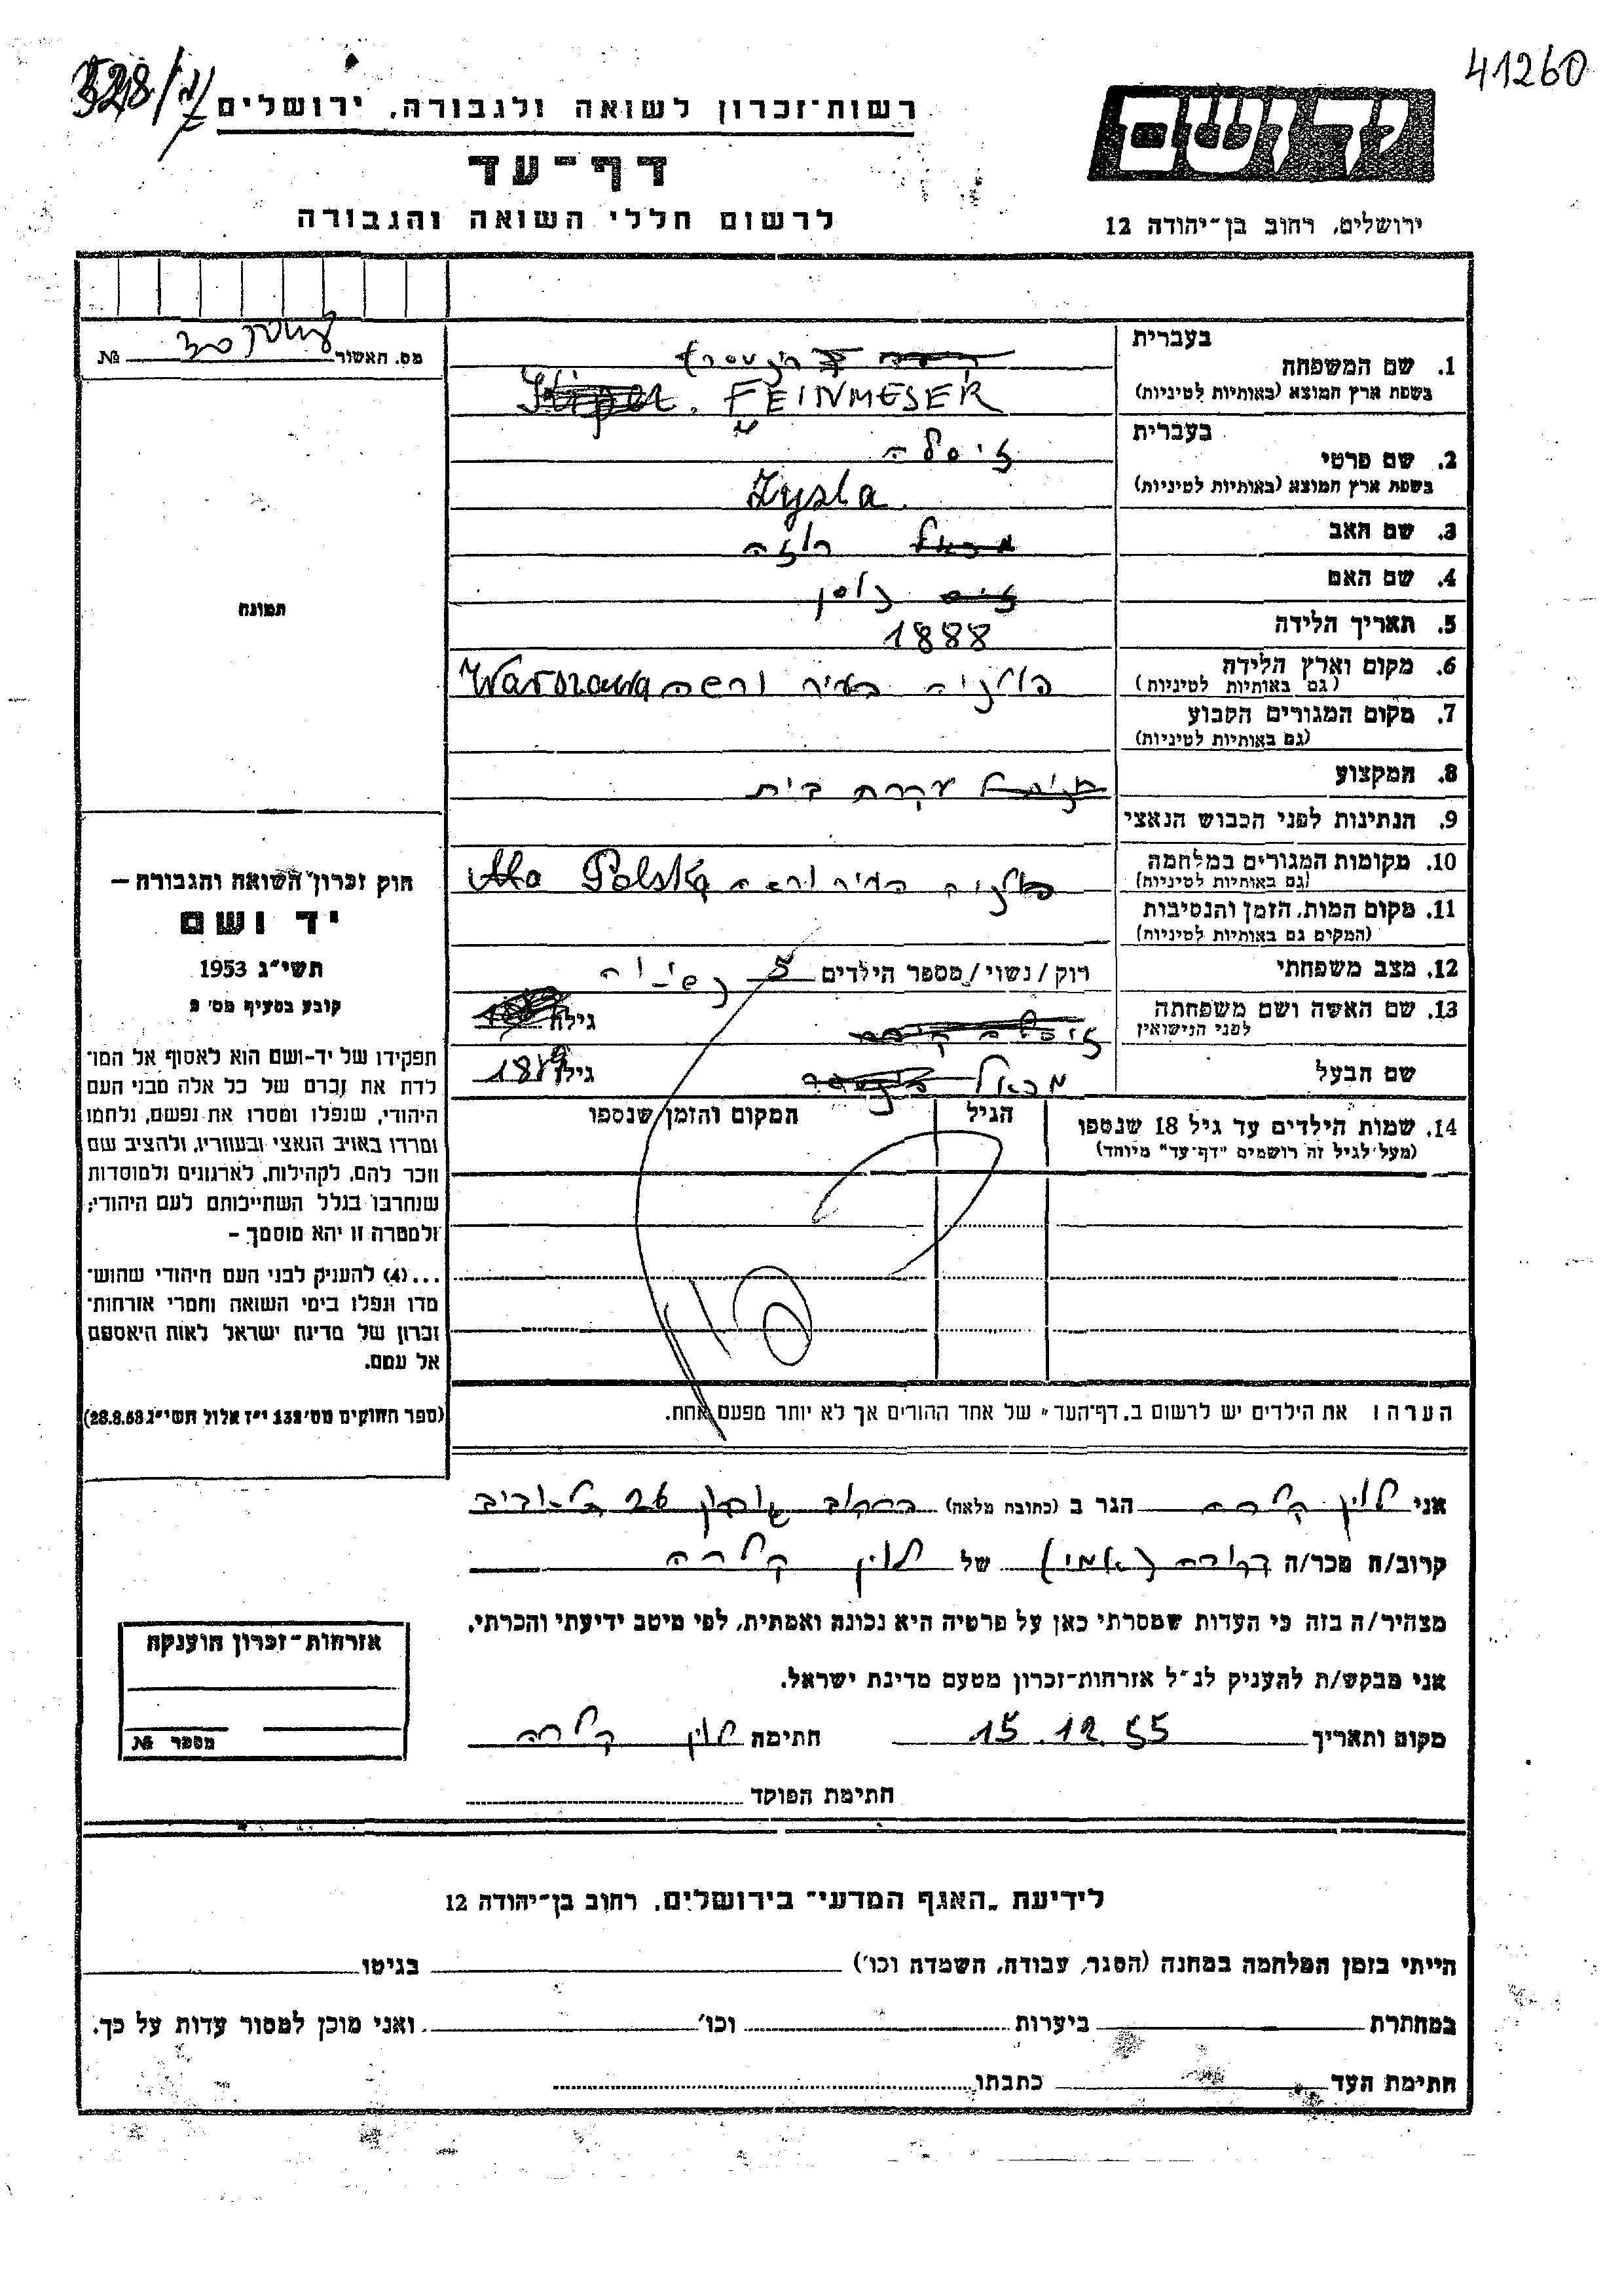 41260
328/
רשות-זכרון לשואה ולגבורה, ירושלים
דף-עד
לרשום חללי השואה והגבורה
יד ושם
ירושלים, רחוב בן-יהודה 12
מס. האשור № 
1. שם המשפחה
בעברית
בשפת ארץ המוצא (באותיות לטיניות) FEINMESER
2. שם פרטי
בעברית זיסלה
בשפת ארץ המוצא (באותיות לטיניות) Zysla
3. שם האב
4. שם האם
5. תאריך הלידה 1888
6. מקום וארץ הלידה פולניה בעיר ורשה Warszawa
(גם באותיות לטיניות)
7. מקום המגורים הקבוע
(גם באותיות לטיניות)
8. המקצוע עקרת בית
9. הנתינות לפני הכבוש הנאצי
10. מקומות המגורים במלחמה פולניה העיר ורשה Polska
(גם באותיות לטיניות)
11. מקום המות, הזמן והנסיבות
(המקום גם באותיות לטיניות)
12. מצב משפחתי רוק/נשוי/מספר הילדים 5 נשואה
13. שם האשה ושם משפחתה גילה
לפני הנישואין
שם הבעל מכאל גילו
14. שמות הילדים עד גיל 18 שנספו הגיל המקום והזמן שנספו
(מעל לגיל זה רושמים "דף-עד" מיוחד)
הערה: את הילדים יש לרשום ב"דף-העד" של אחד ההורים אך לא יותר מפעם אחת.
תמונה
חוק זכרון השואה והגבורה –
יד ושם
תשי"ג 1953
קובע בסעיף מס' 2
תפקידו של יד-ושם הוא לאסוף אל המו-
לדת את זכרם של כל אלה מבני העם
היהודי, שנפלו ומסרו את נפשם, נלחמו
ומרדו באויב הנאצי ובעוזריו, ולהציב שם
וזכר להם, לקהילות, לארגונים ולמוסדות
שנחרבו בגלל השתייכותם לעם היהודי;
ולמטרה זו יהא מוסמך –
...(4) להעניק לבני העם היהודי שהוש-
מדו ונפלו בימי השואה והמרי אזרחות-
זכרון של מדינת ישראל לאות היאספם
אל עמם.
(ספר החוקים מס' 132 י"ז אלול תשי"ג 28.8.53)
אני לוין קלרה הגר ב (כתובת מלאה) ברחוב גורדון 26 תל אביב
קרוב/ה מכר/ה קרובה (אמי) של לוין קלרה
מצהיר/ה בזה כי העדות שמסרתי כאן על פרטיה היא נכונה ואמתית, לפי מיטב ידיעתי והכרתי.
אני מבקש/ת להעניק לנ"ל אזרחות-זכרון מטעם מדינת ישראל.
מקום ותאריך 15.12.55 חתימה לוין קלרה
חתימת הפוקד
אזרחות-זכרון הוענקה
מספר №
לידיעת "האגף המדעי" בירושלים, רחוב בן-יהודה 12
הייתי בזמן המלחמה במחנה (הסגר, עבודה, השמדה וכו') בגיטו
במחתרת ביערות וכו' ואני מוכן למסור עדות על כך.
חתימת העד כתבתו